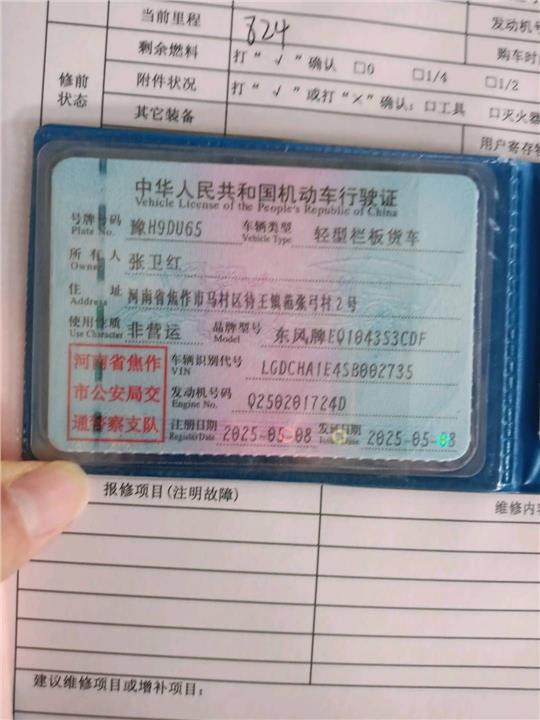 当前里程 824
发动机号
剩余燃料 打“√”确认 □0 □1/4 □1/2
购车时间
修前状态
附件状况 打“√”或打“×”确认：□工具 □灭火器
其它装备
用户寄存
中华人民共和国机动车行驶证
Vehicle License of the People's Republic of China
号牌号码 Plate No. 豫H9DU65 车辆类型 Vehicle Type 轻型栏板货车
所有人 Owner 张卫红
住址 Address 河南省焦作市马村区待王镇苑张弓村2号
使用性质 Use Character 非营运 品牌型号 Model 东风牌EQ1043S3CDF
河南省焦作市公安局交通警察支队
车辆识别代号 VIN LGDCHA1E4SB002735
发动机号码 Engine No. Q250201724D
注册日期 Register Date 2025-05-08 发证日期 2025-05-08
报修项目(注明故障) 维修内容
建议维修项目或增补项目：